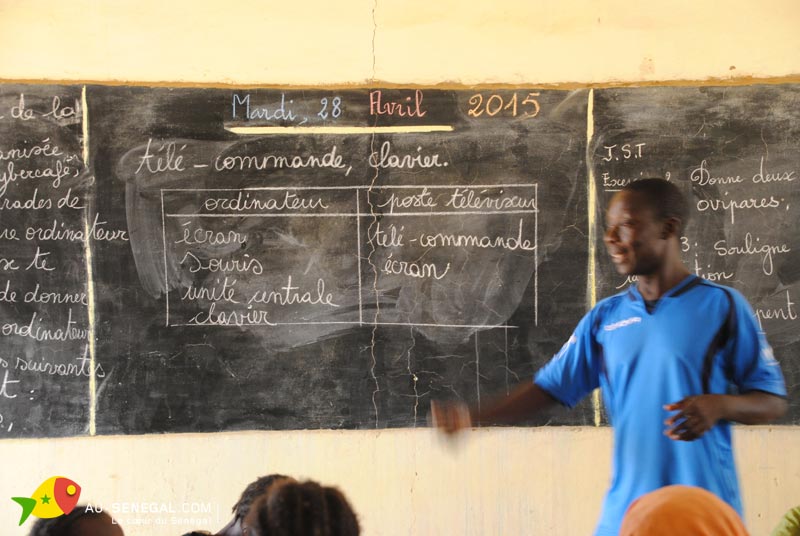 de la
Mardi, 28 Avril 2015
télé-commande, clavier.
ordinateur poste téléviseur
écran télé-commande
souris écran
unité centrale
clavier
anisée
ybercafé,
rades de
re ordinateur
te
de donner
ordinateur
s suivantes
t:
I.S.T
Donne deux
ovipares.
3: Souligne
AU-SENEGAL.COM
Le cœur du Sénégal